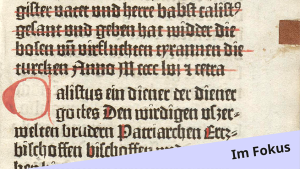 gister vatet und herre babst calist⁹
gesant und geben hat widder die
bosen un̄ virfluchten tyrannen die
turcken Anno M cccc lvi ⁊ cetra
Calistus ein diener der diener
gottes Den wirdigen vszer⸗
welten brudern Patriarchen Ertz⸗
bischoffen bischoffen
Im Fokus